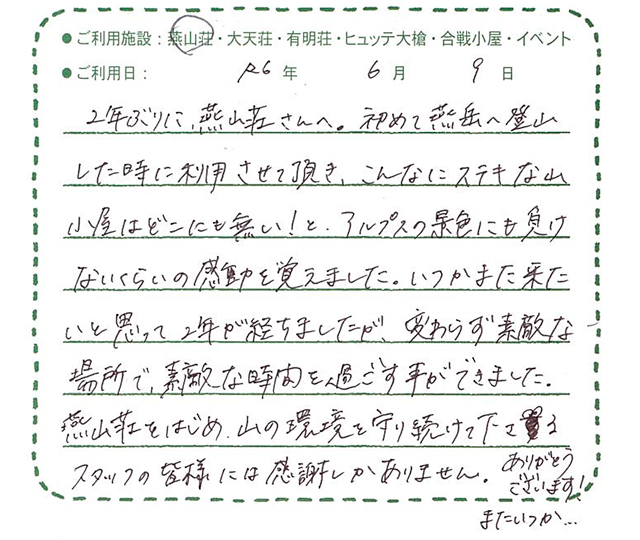 ●ご利用施設：燕山荘・大天荘・有明荘・ヒュッテ大槍・合戦小屋・イベント
●ご利用日： R6 年 6 月 9 日
2年ぶりに、燕山荘さんへ。初めて燕岳へ登山
した時に利用させて頂き、こんなにステキな山
小屋はどこにも無い！と、アルプスの景色にも負け
ないくらいの感動を覚えました。いつかまた来た
いと思って2年が経ちましたが、変わらず素敵な
場所で、素敵な時間を過ごす事ができました。
燕山荘をはじめ、山の環境を守り続けて下さる
スタッフの皆様には感謝しかありません。
ありがとう
ございます！
またいつか…